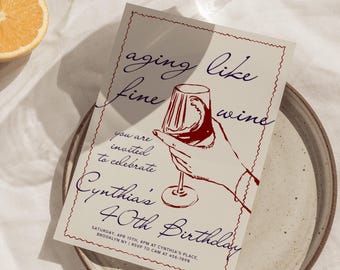 aging like
fine wine
you are
invited
to celebrate
Cynthia's
40th Birthday
SATURDAY, APR 15TH, 4PM AT CYNTHIA'S PLACE,
BROOKLYN NY | RSVP TO CAM AT 456-7898